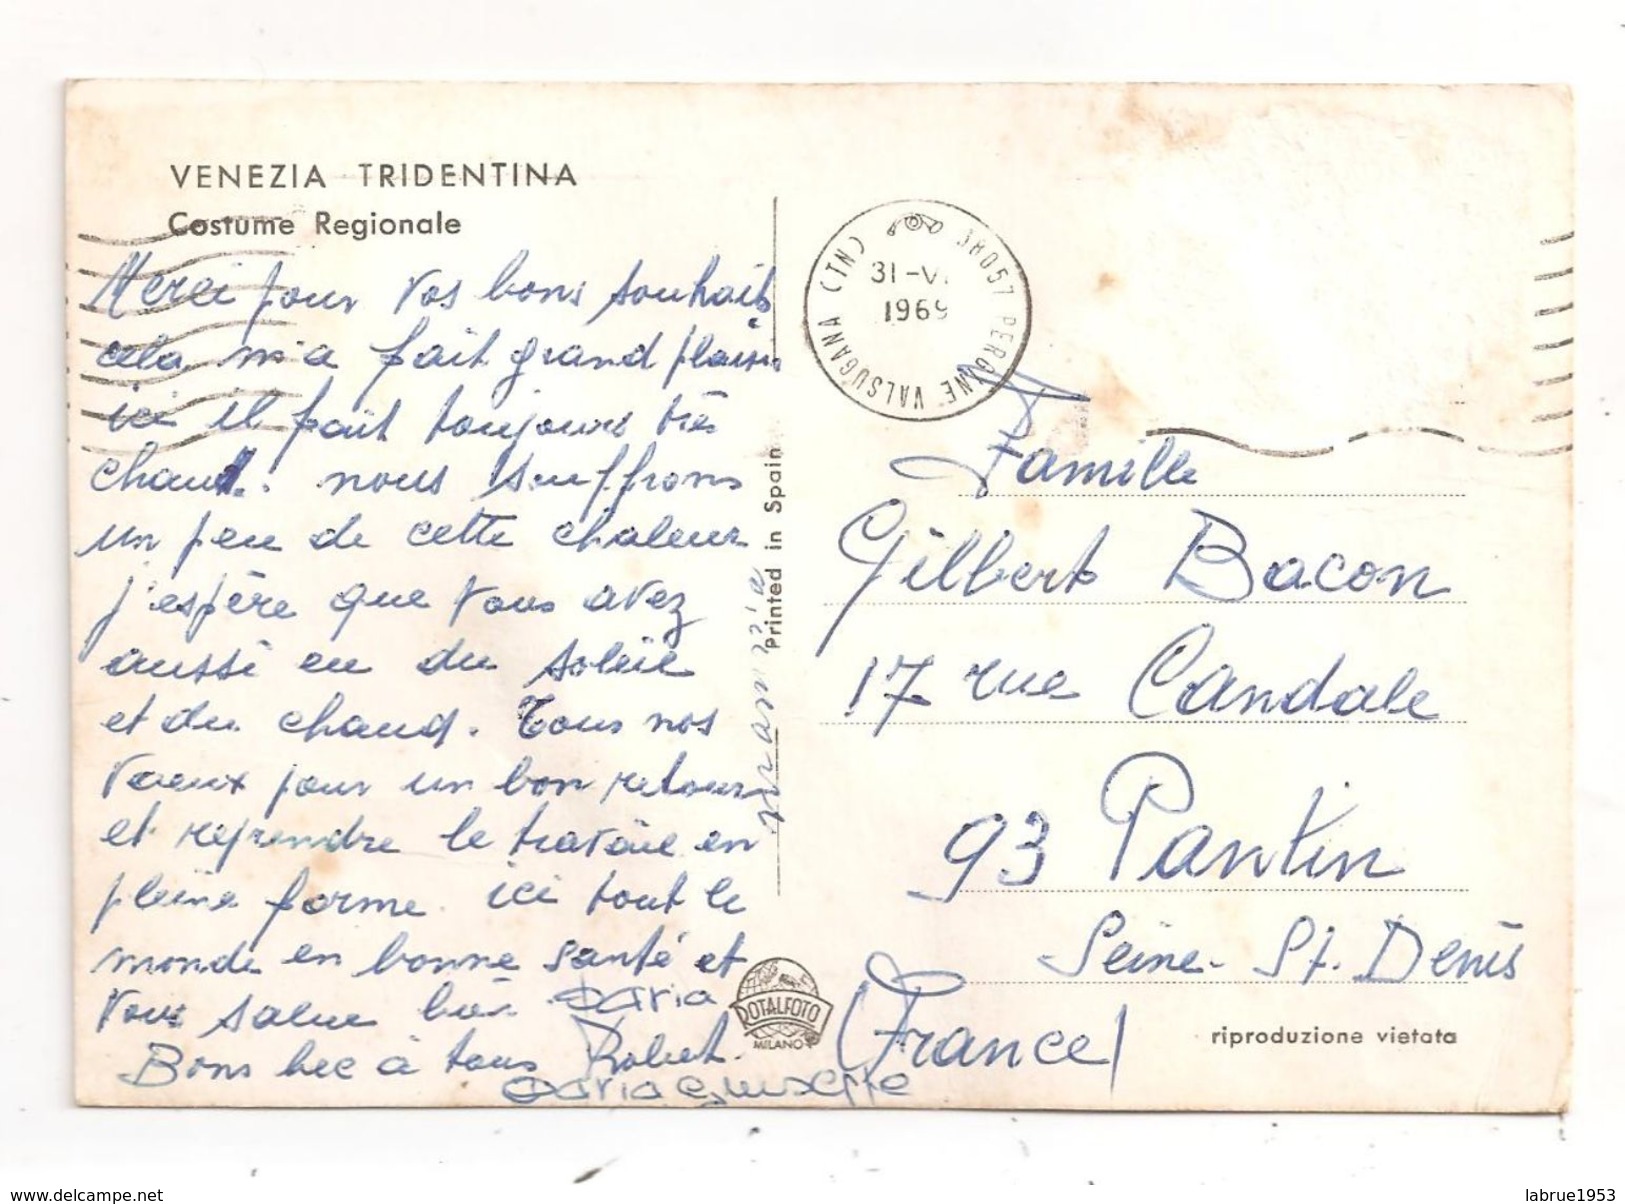 VENEZIA TRIDENTINA
Costume Regionale
Merci pour vos bons souhaits
cela m'a fait grand plaisir
ici il fait toujours très
chaud. nous souffrons
un peu de cette chaleur
j'espère que vous avez
aussi eu du soleil
et du chaud. Tous nos
voeux pour un bon retour
et reprendre le travail en
pleine forme. ici tout le
monde en bonne santé et
vous salue bien Daria
Bons bec à tous Robert.
Daria Giuseppe
Printed in Spain
ROTALFOTO
MILANO
38057 PERGINE VALSUGANA (TN)
31-VI
1969
Famille
Gilbert Bacon
17 rue Candale
93 Pantin
Seine-St. Denis
(France)
riproduzione vietata
www.delcampe.net
labrue1953